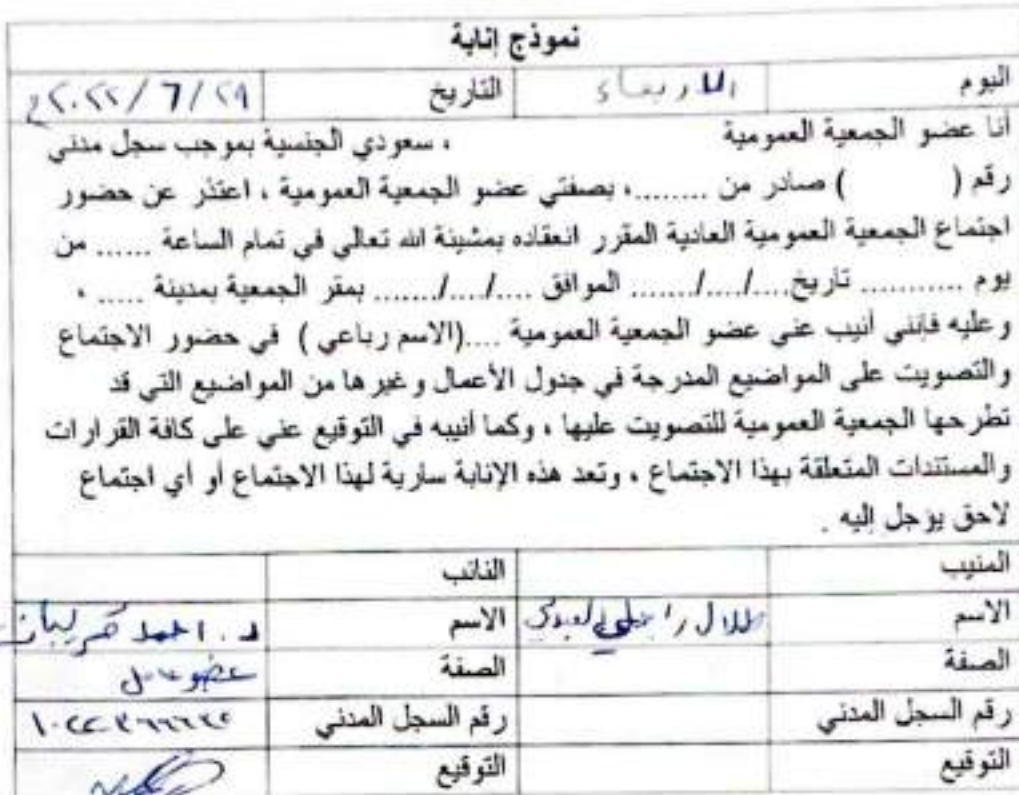 نموذج إنابة
اليوم الاربعاء التاريخ ٢٠٢٢/٦/٢٩ م
أنا عضو الجمعية العمومية ، سعودي الجنسية بموجب سجل مدني
رقم ( ) صادر من ........، بصفتي عضو الجمعية العمومية ، اعتذر عن حضور
اجتماع الجمعية العمومية العادية المقرر انعقاده بمشيئة الله تعالى في تمام الساعة ...... من
يوم ........... تاريخ..../..../....... الموافق ..../..../....... بمقر الجمعية بمدينة ..... ،
وعليه فإنني أنيب عني عضو الجمعية العمومية ....(الاسم رباعي ) في حضور الاجتماع
والتصويت على المواضيع المدرجة في جدول الأعمال وغيرها من المواضيع التي قد
تطرحها الجمعية العمومية للتصويت عليها ، وكما أنيبه في التوقيع عني على كافة القرارات
والمستندات المتعلقة بهذا الاجتماع ، وتعد هذه الإنابة سارية لهذا الاجتماع أو أي اجتماع
لاحق يؤجل إليه .
المنيب النائب
الاسم طلال الاسم د. احمد
الصفة الصفة عضو عامل
رقم السجل المدني رقم السجل المدني
التوقيع التوقيع